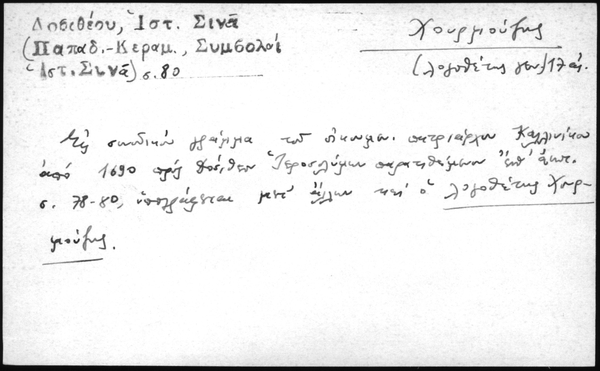 Δοσιθέου, Ἱστ. Σινᾶ
(Παπαδ.-Κεραμ., Συμβολαί
Ἱστ. Σινᾶ) σ. 80
Χουρμούζης
(λογοθέτης γεν.) 17 αἰ.
Εἰς συνοδικόν γράμμα τοῦ οἰκουμεν. πατριάρχου Καλλινίκου
ἀπό 1690 πρός Δοσίθεον Ἱεροσολύμων παρατιθέμενον
σ. 78-80, ὑπογράφεται μετ' ἄλλων καί ὁ λογοθέτης Χουρ-
μούζης.